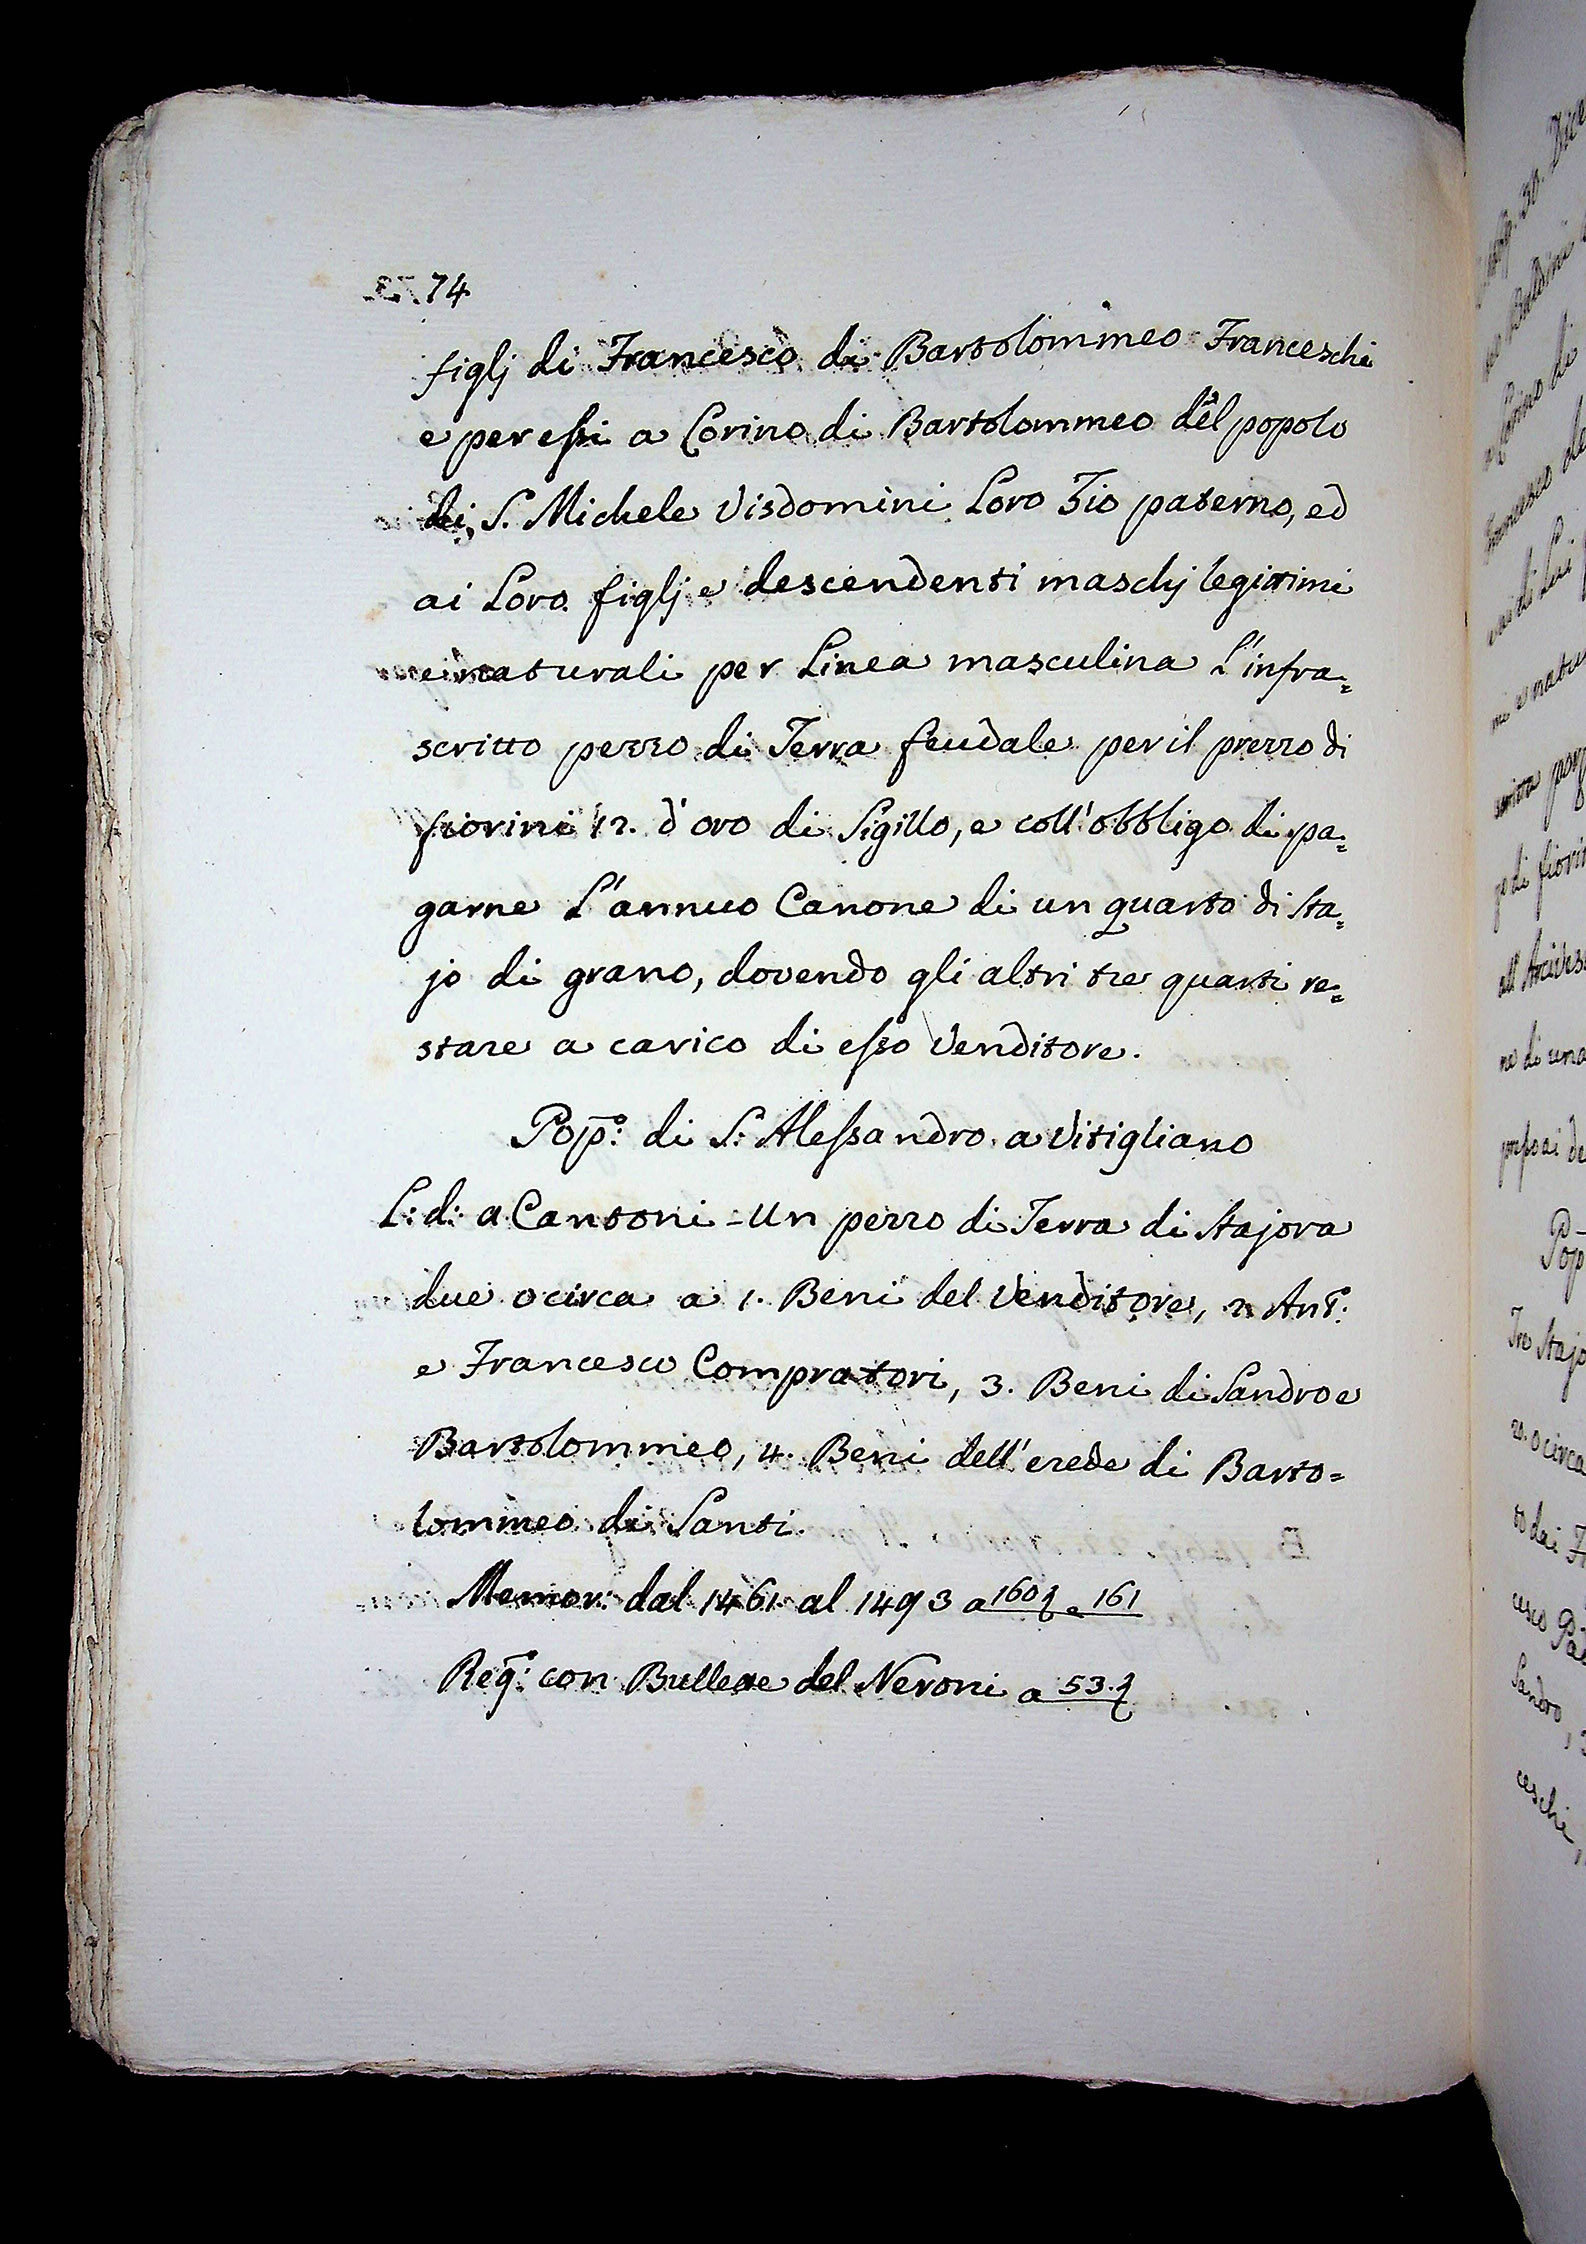 74
figlj di Francesco di Bartolommeo Franceschi
e per essi a Corino di Bartolommeo del popolo
di S. Michele Visdomini Loro Zio paterno, ed
ai Loro figlj e descendenti maschj legittimi
e naturali per Linea masculina L'infra=
scritto pezzo di Terra feudale per il prezzo di
fiorini 12. d'oro di Sigillo, e coll'obbligo di pa=
garne L'annuo Canone di un quarto di sta=
jo di grano, dovendo gli altri tre quarti re=
stare a carico di esso Venditore.
Pop.º: di S: Alessandro a Vitigliano
L: d: a Cantoni - Un pezzo di Terra di Stajora
due o circa a 1. Beni del Venditore, 2. Ant.º:
e Francesco Compratori, 3. Beni di Sandro e
Bartolommeo, 4. Beni dell'erede di Barto=
lommeo di Santi.
Memor: dal 1461 al 1493 a 160 e 161
Reg.º: con Bullette del Neroni a 53.
30. Dice
Baldini
Corino di
Francesco de
di Lui
ni e natu
scritto
zo di fiorin
all' Arcives
ne di una
Pop
Tre Stajo
o circa
to dei
cesco
Sandro,
ceschi,